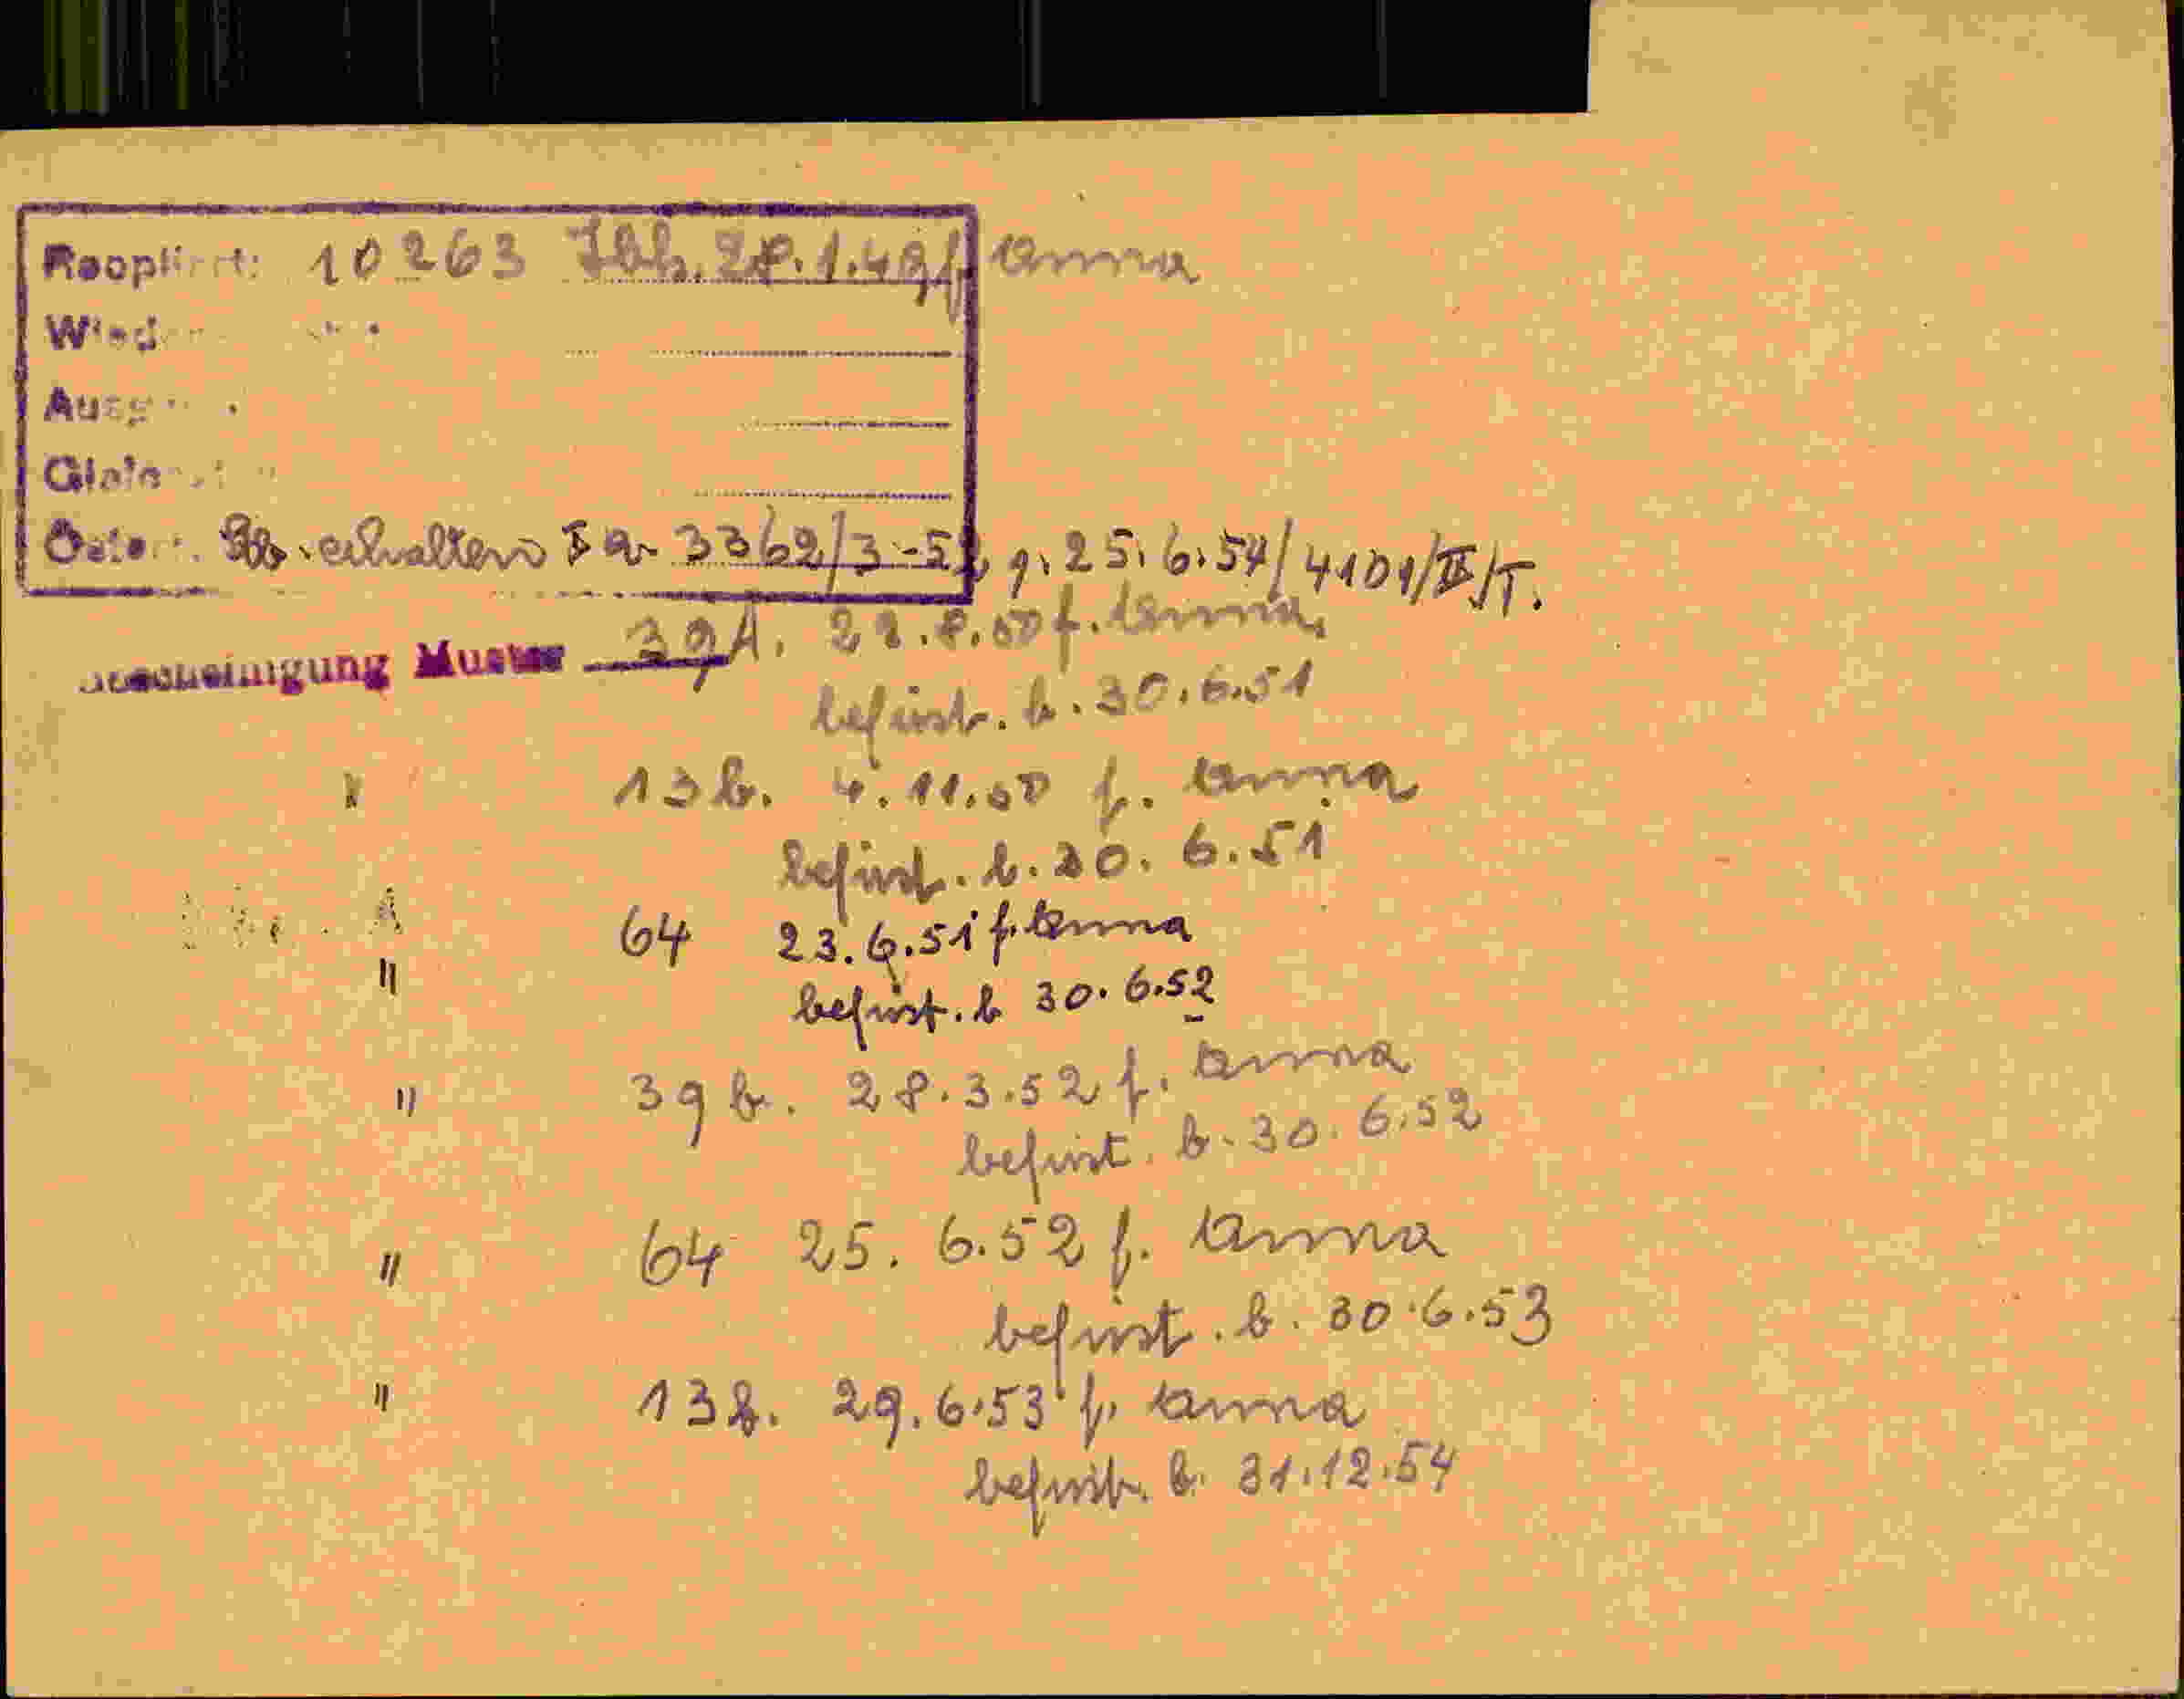 10263 Ibk. 28.1.49 f. Anna
Stb. erhalten Ia 3362/3-52, g. 25.6.54/4101/II/T.
Bescheinigung Muster 39A. 22.8.50 f. Anna
befrist. b. 30.6.51
" 13b. 4.11.50 f. Anna
befrist. b. 30.6.51
64 23.6.51 f. Anna
" befrist. b 30.6.52
" 39b. 28.3.52 f. Anna
befrist. b. 30.6.52
" 64 25.6.52 f. Anna
befrist. b. 30.6.53
" 13b. 29.6.53 f. Anna
befrist. b. 31.12.54